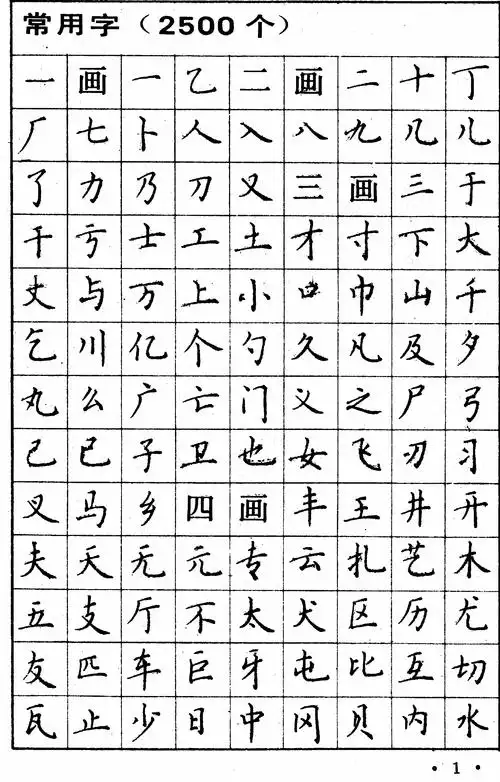 常用字（2500个）
一画一乙二画二十丁
厂七卜人入八九几儿
了力乃刀又三画三于
干亏士工土才寸下大
丈与万上小口巾山千
乞川亿个勺久凡及夕
丸么广亡门义之尸弓
己已子卫也女飞刃习
叉马乡四画丰王井开
夫天无元专云扎艺木
五支厅不太犬区历尤
友匹车巨牙屯比互切
瓦止少日中冈贝内水
·1·